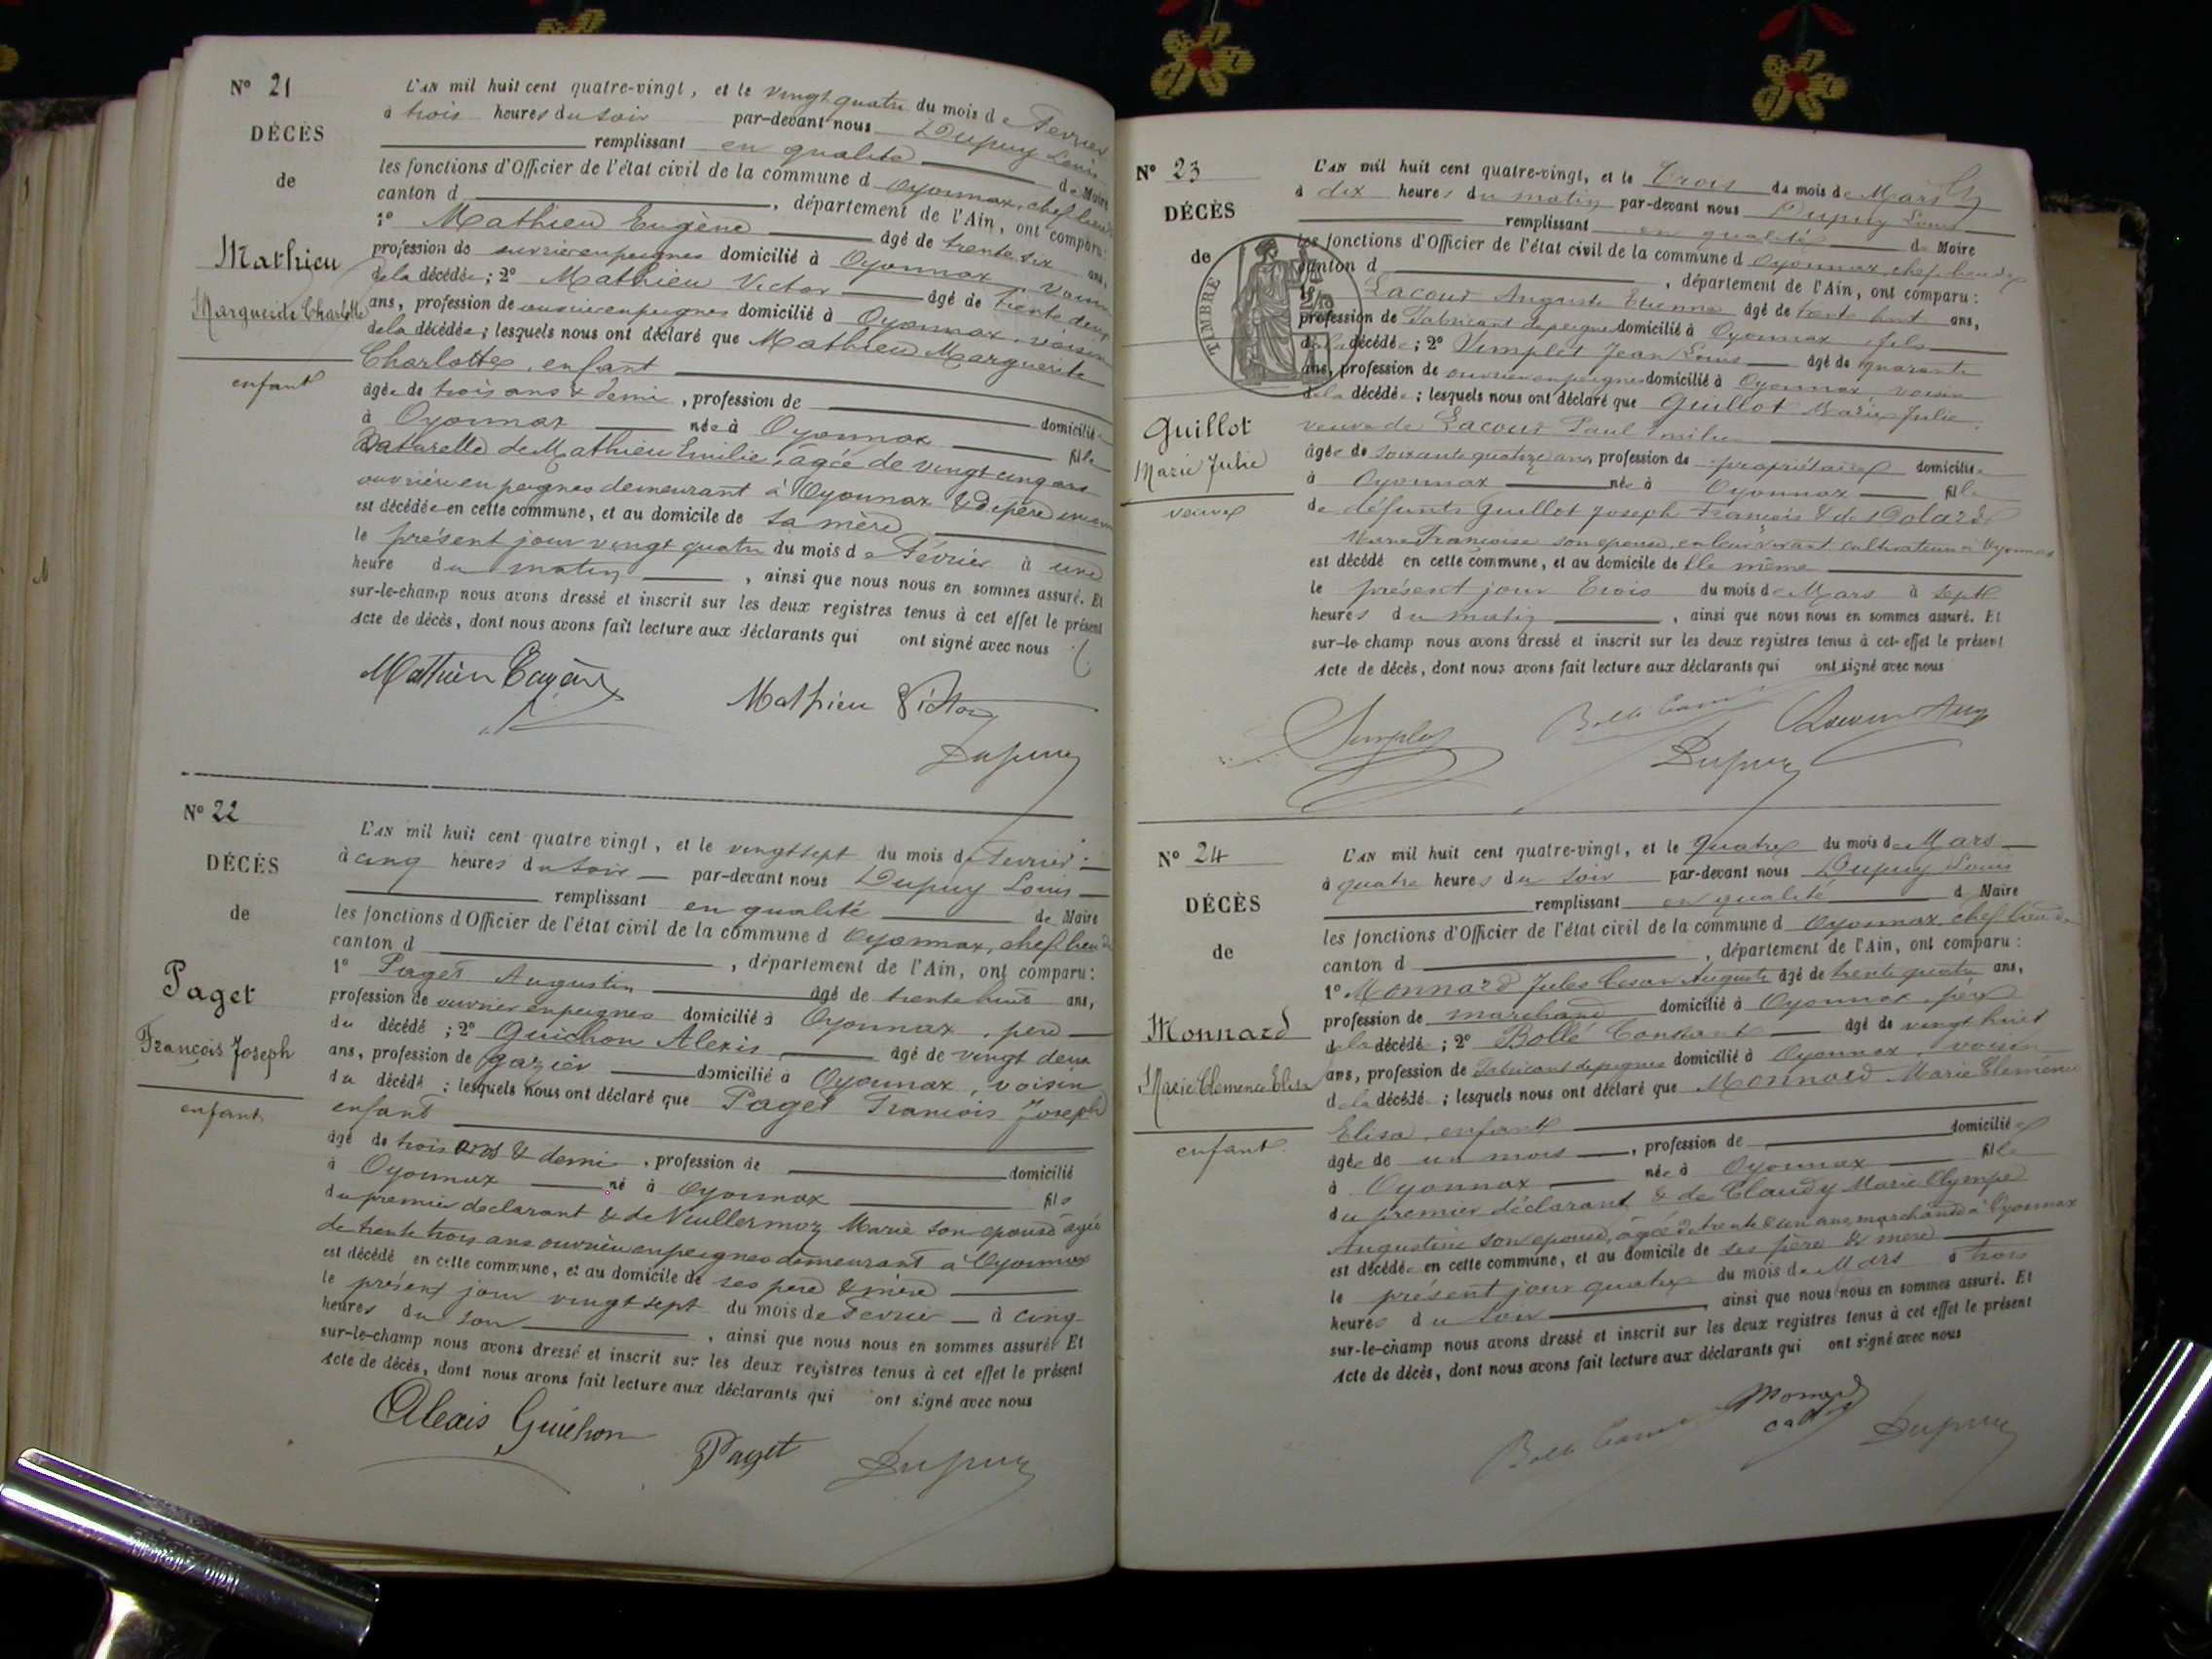 N° 21
DÉCÈS
de
Mathieu
Marguerite Charlotte
enfant
L'AN mil huit cent quatre-vingt, et le vingt quatre du mois de Fevrier
à trois heures du soir par-devant nous Dupuy Louis
remplissant en qualité de Maire
les fonctions d'Officier de l'état civil de la commune d Oyonnax, chef lieu de
canton d , département de l'Ain, ont comparu:
1° Mathieu Eugène âgé de trente six ans,
profession de ouvrier en peignes domicilié à Oyonnax, voisin
de la décédée; 2° Mathieu Victor âgé de trente deux
ans, profession de ouvrier en peignes domicilié à Oyonnax, voisin
de la décédée; lesquels nous ont déclaré que Mathieu Marguerite
Charlotte, enfant
âgée de trois ans & demi, profession de domiciliée
à Oyonnax née à Oyonnax fille
Naturelle de Mathieu Emilie, agée de vingt cinq ans
ouvrière en peignes demeurant à Oyonnax & de père inconnu
est décédée en cette commune, et au domicile de sa mère
le présent jour vingt quatre du mois de Février à une
heure du matin, ainsi que nous nous en sommes assuré. Et
sur-le-champ nous avons dressé et inscrit sur les deux registres tenus à cet effet le présent
Acte de décès, dont nous avons fait lecture aux déclarants qui ont signé avec nous
Mathieu Eugène
Mathieu Victor
Dupuy
N° 22
DÉCÈS
de
Paget
François Joseph
enfant
L'AN mil huit cent quatre vingt, et le vingt sept du mois de Fevrier
à cinq heures du soir par-devant nous Dupuy Louis
remplissant en qualité de Maire
les fonctions d'Officier de l'état civil de la commune d Oyonnax, chef lieu de
canton d , département de l'Ain, ont comparu:
1° Paget Augustin âgé de trente huit ans,
profession de ouvrier en peignes domicilié à Oyonnax, père
du décédé; 2° Guichon Alexis âgé de vingt deux
ans, profession de gazier domicilié à Oyonnax, voisin
du décédé; lesquels nous ont déclaré que Paget François Joseph
enfant
âgé de trois ans & demi, profession de domicilié
à Oyonnax né à Oyonnax fils
du premier declarant & de Vuillermoz Marie son epouse agée
de trente trois ans ouvrière en peignes demeurant à Oyonnax
est décédé en cette commune, et au domicile de ses père & mère
le présent jour vingt sept du mois de Fevrier à cinq
heures du soir, ainsi que nous nous en sommes assuré. Et
sur-le-champ nous avons dressé et inscrit sur les deux registres tenus à cet effet le présent
Acte de décès, dont nous avons fait lecture aux déclarants qui ont signé avec nous
Alexis Guichon
Paget
Dupuy
N° 23
DÉCÈS
de
TIMBRE
Guillot
Marie Julie
veuve
L'AN mil huit cent quatre-vingt, et le Trois du mois de Mars
à dix heures du matin par-devant nous Dupuy Louis
remplissant en qualité de Maire
les fonctions d'Officier de l'état civil de la commune d Oyonnax, chef lieu de
canton d , département de l'Ain, ont comparu:
1° Lacour Auguste Etienne âgé de trente huit ans,
profession de Fabricant de peignes domicilié à Oyonnax, fils
de la décédée; 2° Simplet Jean Louis âgé de quarante
ans, profession de ouvrier en peignes domicilié à Oyonnax voisin
de la décédée; lesquels nous ont déclaré que Guillot Marie Julie,
veuve de Lacour Paul
âgée de soixante quatorze ans, profession de propriétaire domiciliée
à Oyonnax née à Oyonnax fille
de défunts Guillot Joseph François & de
Marie Françoise son epouse, en leur vivant cultivateurs à Oyonnax
est décédé en cette commune, et au domicile de Elle même
le présent jour Trois du mois de Mars à sept
heures du matin, ainsi que nous nous en sommes assuré. Et
sur-le-champ nous avons dressé et inscrit sur les deux registres tenus à cet effet le présent
Acte de décès, dont nous avons fait lecture aux déclarants qui ont signé avec nous
Simplet
Dupuy
N° 24
DÉCÈS
de
Monnard
Marie Clemence Elisa
enfant
L'AN mil huit cent quatre-vingt, et le quatre du mois de Mars
à quatre heures du soir par-devant nous Dupuy Louis
remplissant en qualité d Maire
les fonctions d'Officier de l'état civil de la commune d Oyonnax, chef lieu de
canton d , département de l'Ain, ont comparu:
1° Monnard Jules Cesar Auguste âgé de trente quatre ans,
profession de marchand domicilié à Oyonnax, père
de la décédée; 2° Bollé Constant âgé de vingt huit
ans, profession de Fabricant de peignes domicilié à Oyonnax, voisin
de la décédée; lesquels nous ont déclaré que Monnard Marie Clemence
Elisa, enfant
âgée de un mois, profession de domiciliée
à Oyonnax née à Oyonnax fille
du premier déclarant & de Claudy Marie Olympe
Augustine son epouse, agée de trente & un ans, marchande à Oyonnax
est décédée en cette commune, et au domicile de ses père & mère
le présent jour quatre du mois de Mars à trois
heures du soir, ainsi que nous nous en sommes assuré. Et
sur-le-champ nous avons dressé et inscrit sur les deux registres tenus à cet effet le présent
Acte de décès, dont nous avons fait lecture aux déclarants qui ont signé avec nous
Monnard
Dupuy